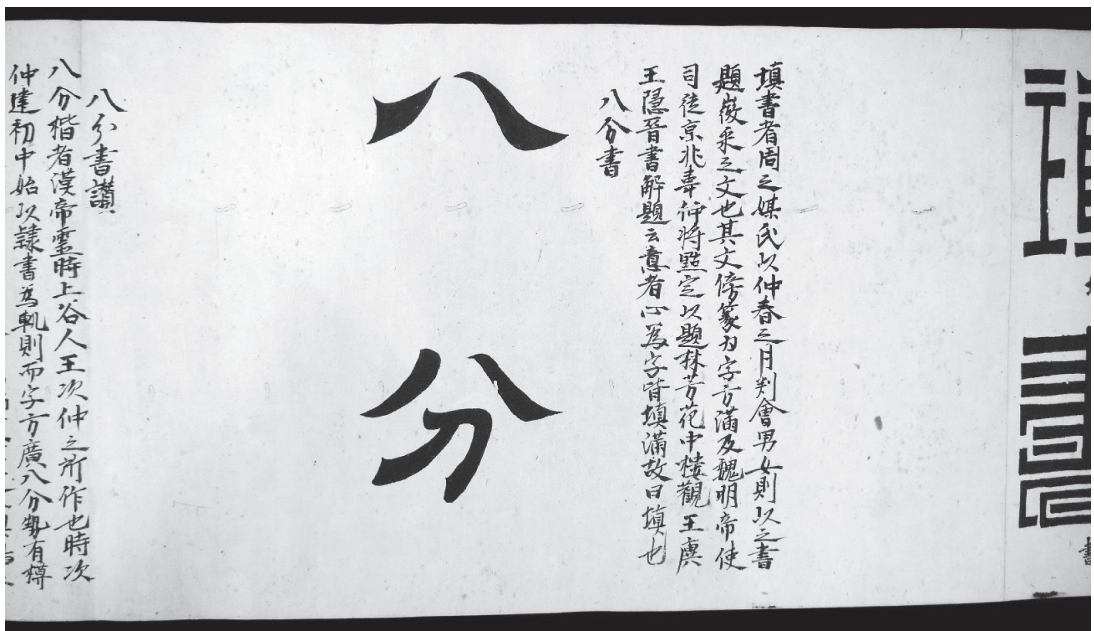 填書
填書者周之媒氏以仲春之月判會男女則以之書
題嶶采之文也其文傍篆为字方滿及魏明帝使
司徒京兆韋仲將點定以題林芳花中樓觀王廙
王隱晉書解題云意者心為字皆填滿故曰填也
八分書
八分
八分書讃
八分楷者漢帝靈時上谷人王次仲之所作也時次
仲建初中始以隸書為軌則而字方廣八分勢有